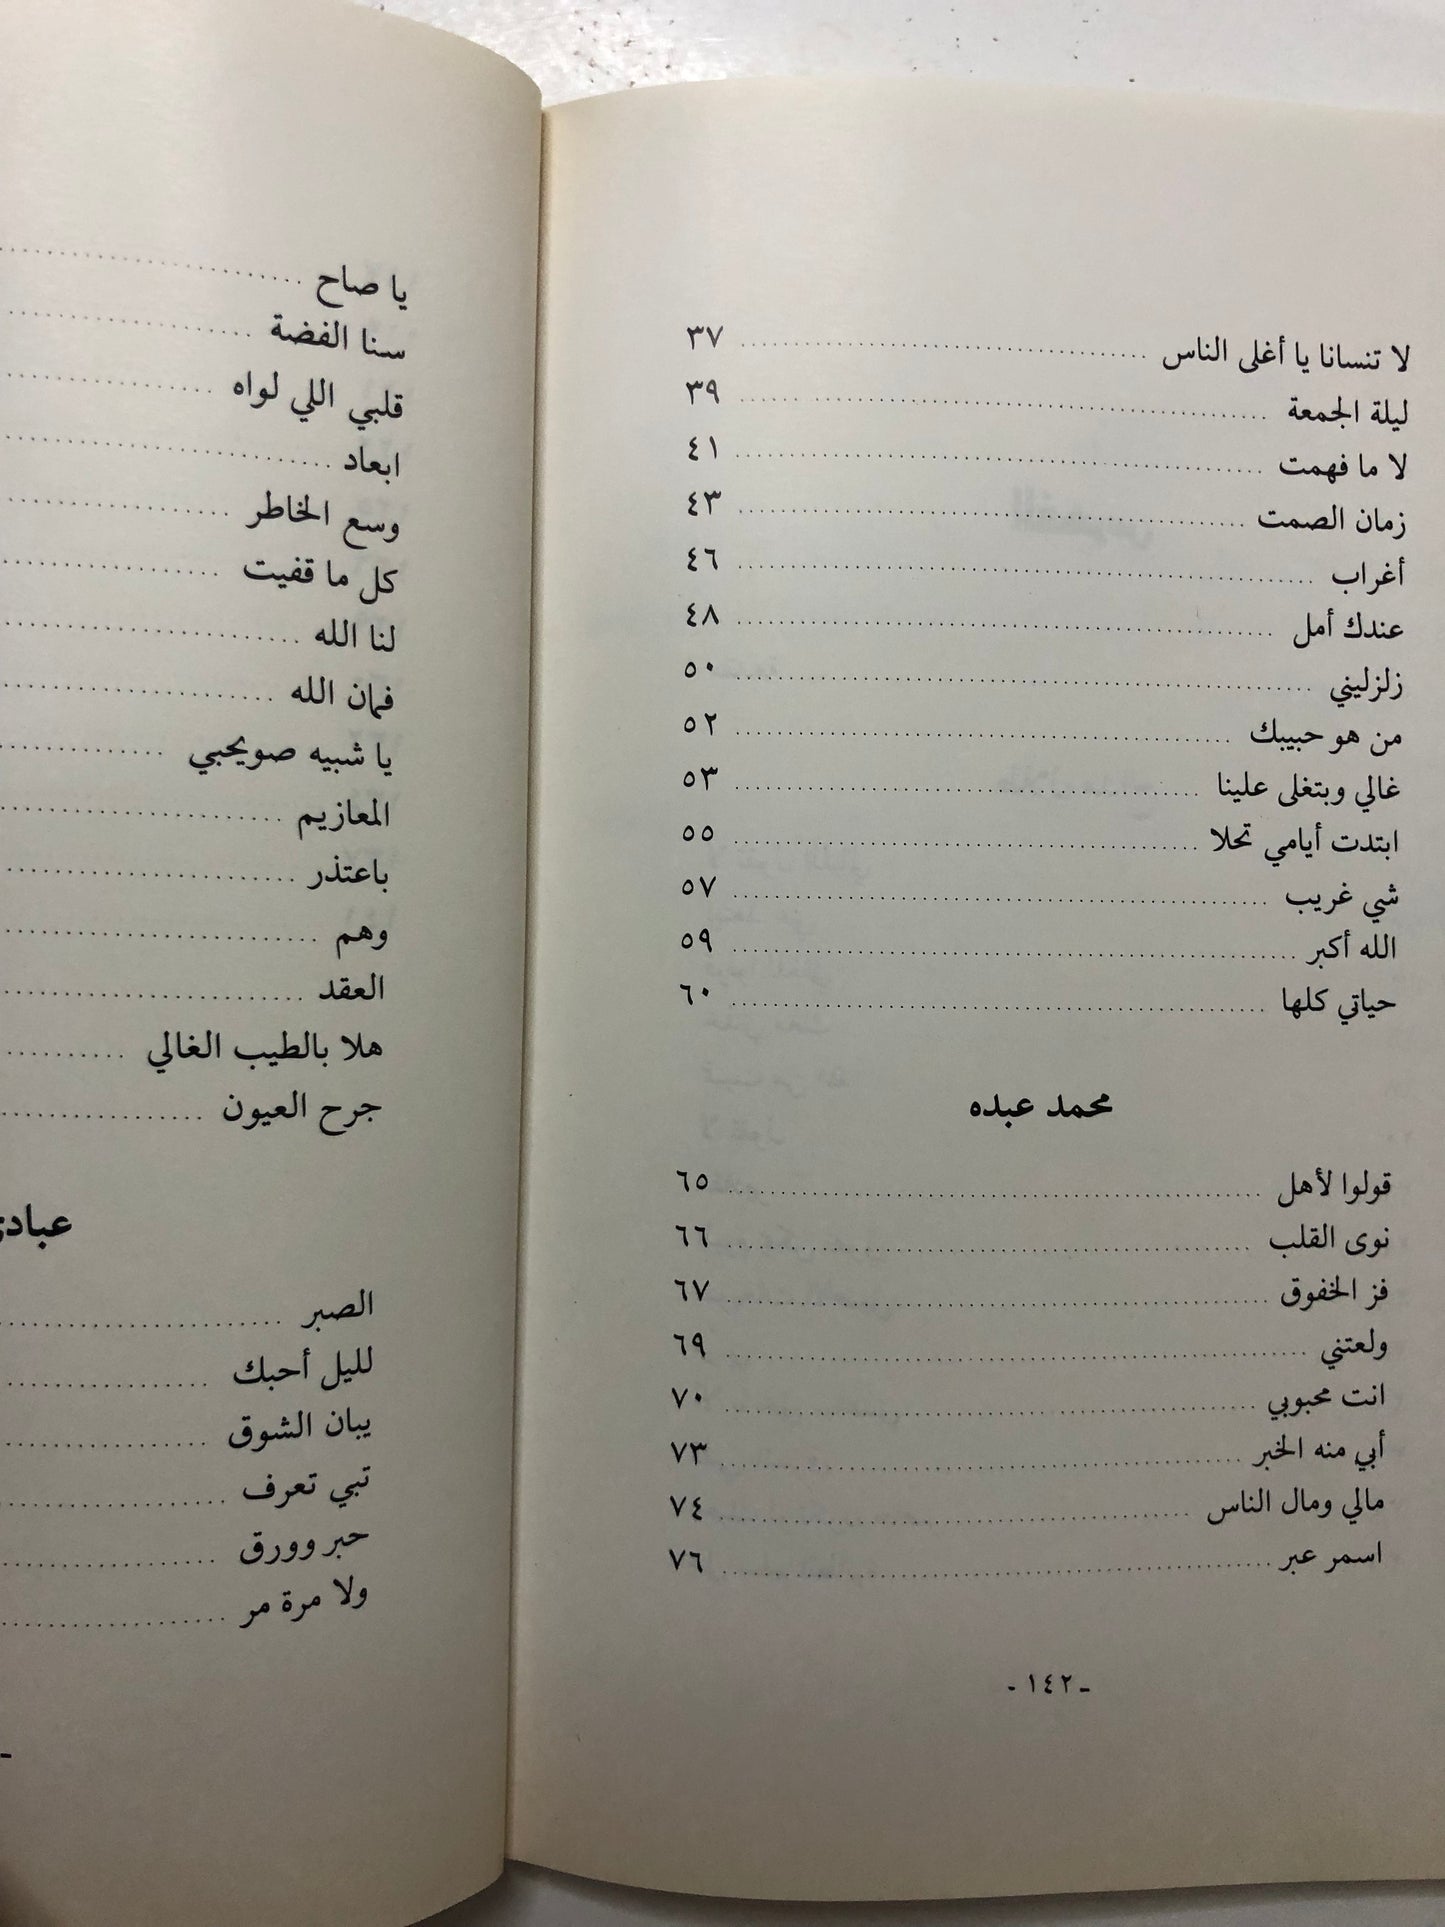 لا تنسانا يا أغلى الناس ........ ٣٧
ليلة الجمعة ........ ٣٩
لا ما فهمت ........ ٤١
زمان الصمت ........ ٤٣
أغراب ........ ٤٦
عندك أمل ........ ٤٨
زلزليني ........ ٥٠
من هو حبيبك ........ ٥٢
غالي وبتغلى علينا ........ ٥٣
ابتدت أيامي تحلا ........ ٥٥
شي غريب ........ ٥٧
الله أكبر ........ ٥٩
حياتي كلها ........ ٦٠
محمد عبده
قولوا لأهل ........ ٦٥
نوى القلب ........ ٦٦
فز الخفوق ........ ٦٧
ولعتني ........ ٦٩
انت محبوبي ........ ٧٠
أبي منه الخبر ........ ٧٣
مالي ومال الناس ........ ٧٤
اسمر عبر ........ ٧٦
- ١٤٢ -
يا صاح ........
سنا الفضة ........
قلبي اللي لواه ........
ابعاد ........
وسع الخاطر ........
كل ما قفيت ........
لنا الله ........
فمان الله ........
يا شبيه صويحبي ........
المعازيم ........
باعتذر ........
وهم ........
العقد ........
هلا بالطيب الغالي ........
جرح العيون ........
الصبر ........
لليل أحبك ........
يبان الشوق ........
تبي تعرف ........
حبر وورق ........
ولا مرة مر ........